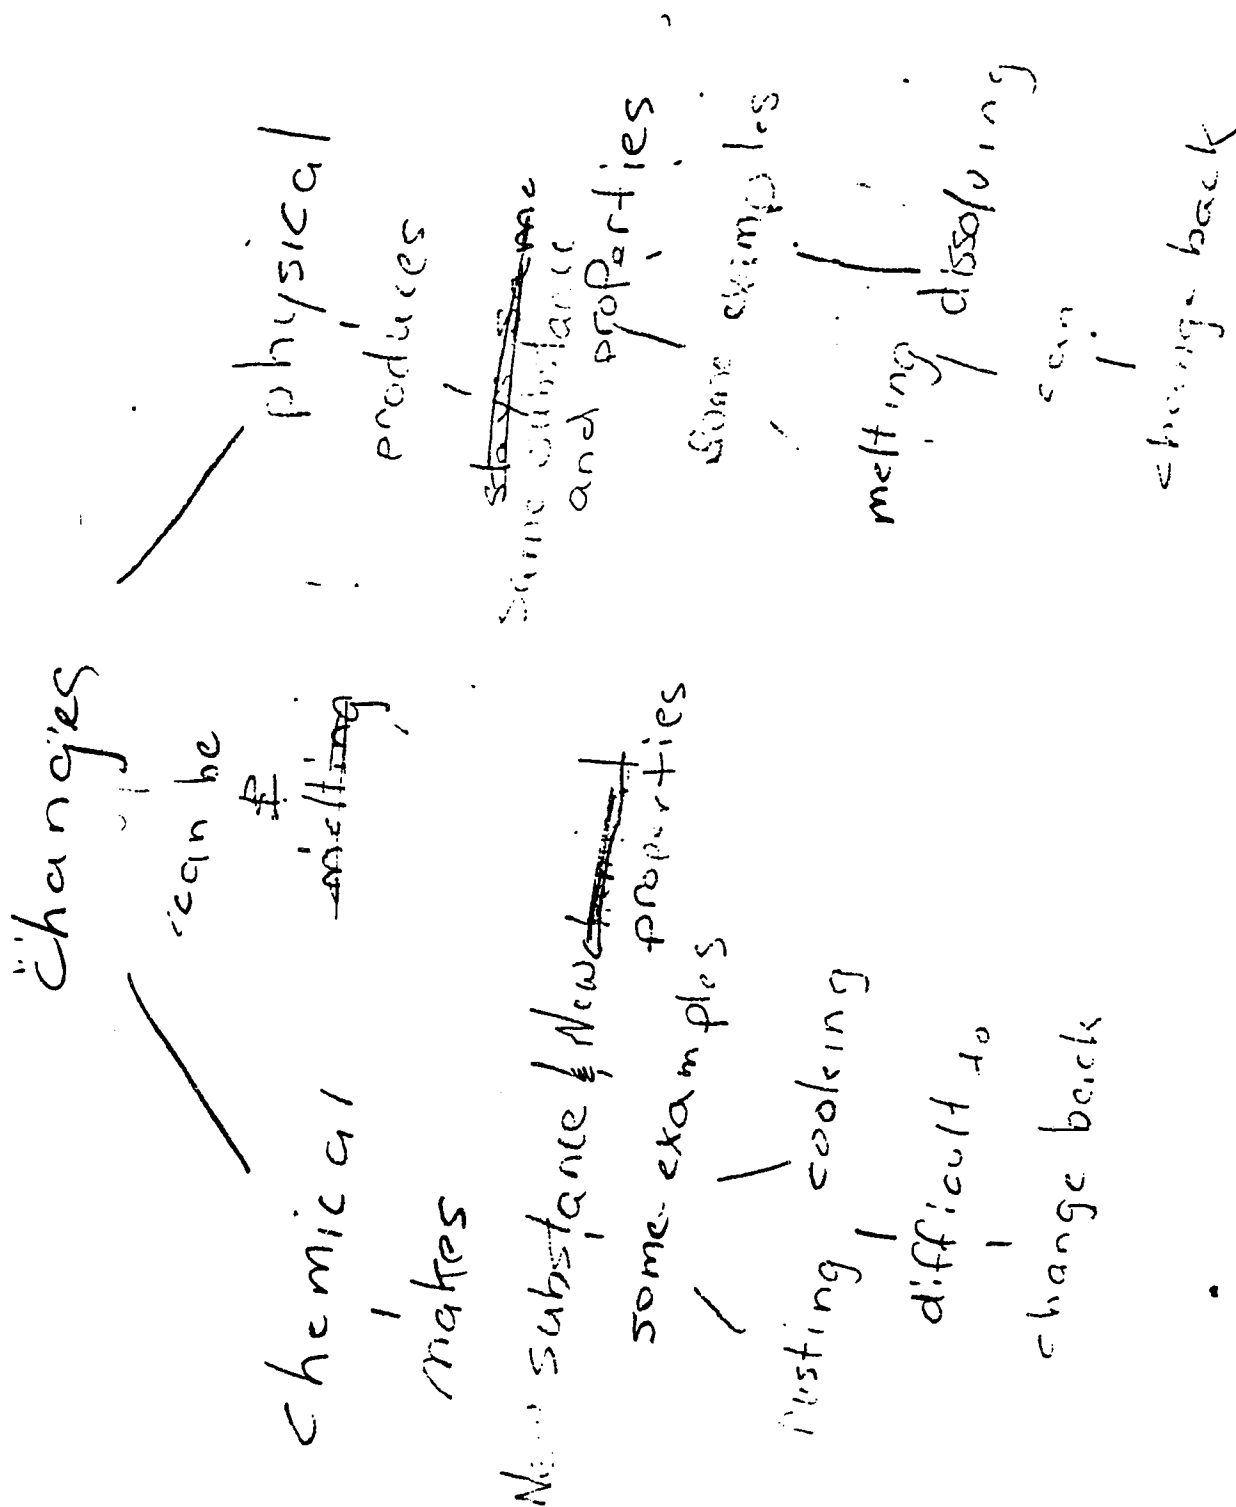 Changes
can be
melting
chemical
makes
New substance & New
properties
some examples
rusting cooking
difficult to
change back
physical
produces
stays same
same substance
and properties
some examples
melting dissolving
can
change back